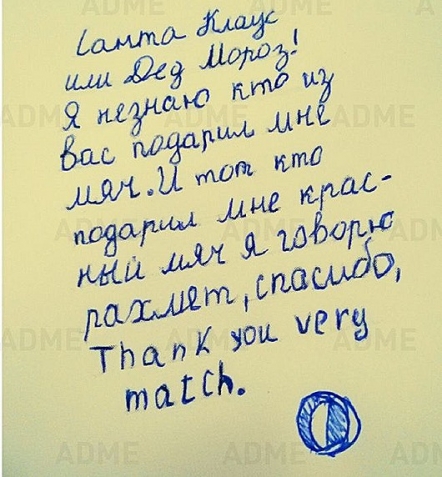 Санта Клаус
или Дед Мороз!
Я незнаю кто из
вас подарил мне
мяч. И тот кто
подарил мне крас-
ный мяч я говорю
рахмет, спасибо,
Thank you very
match.